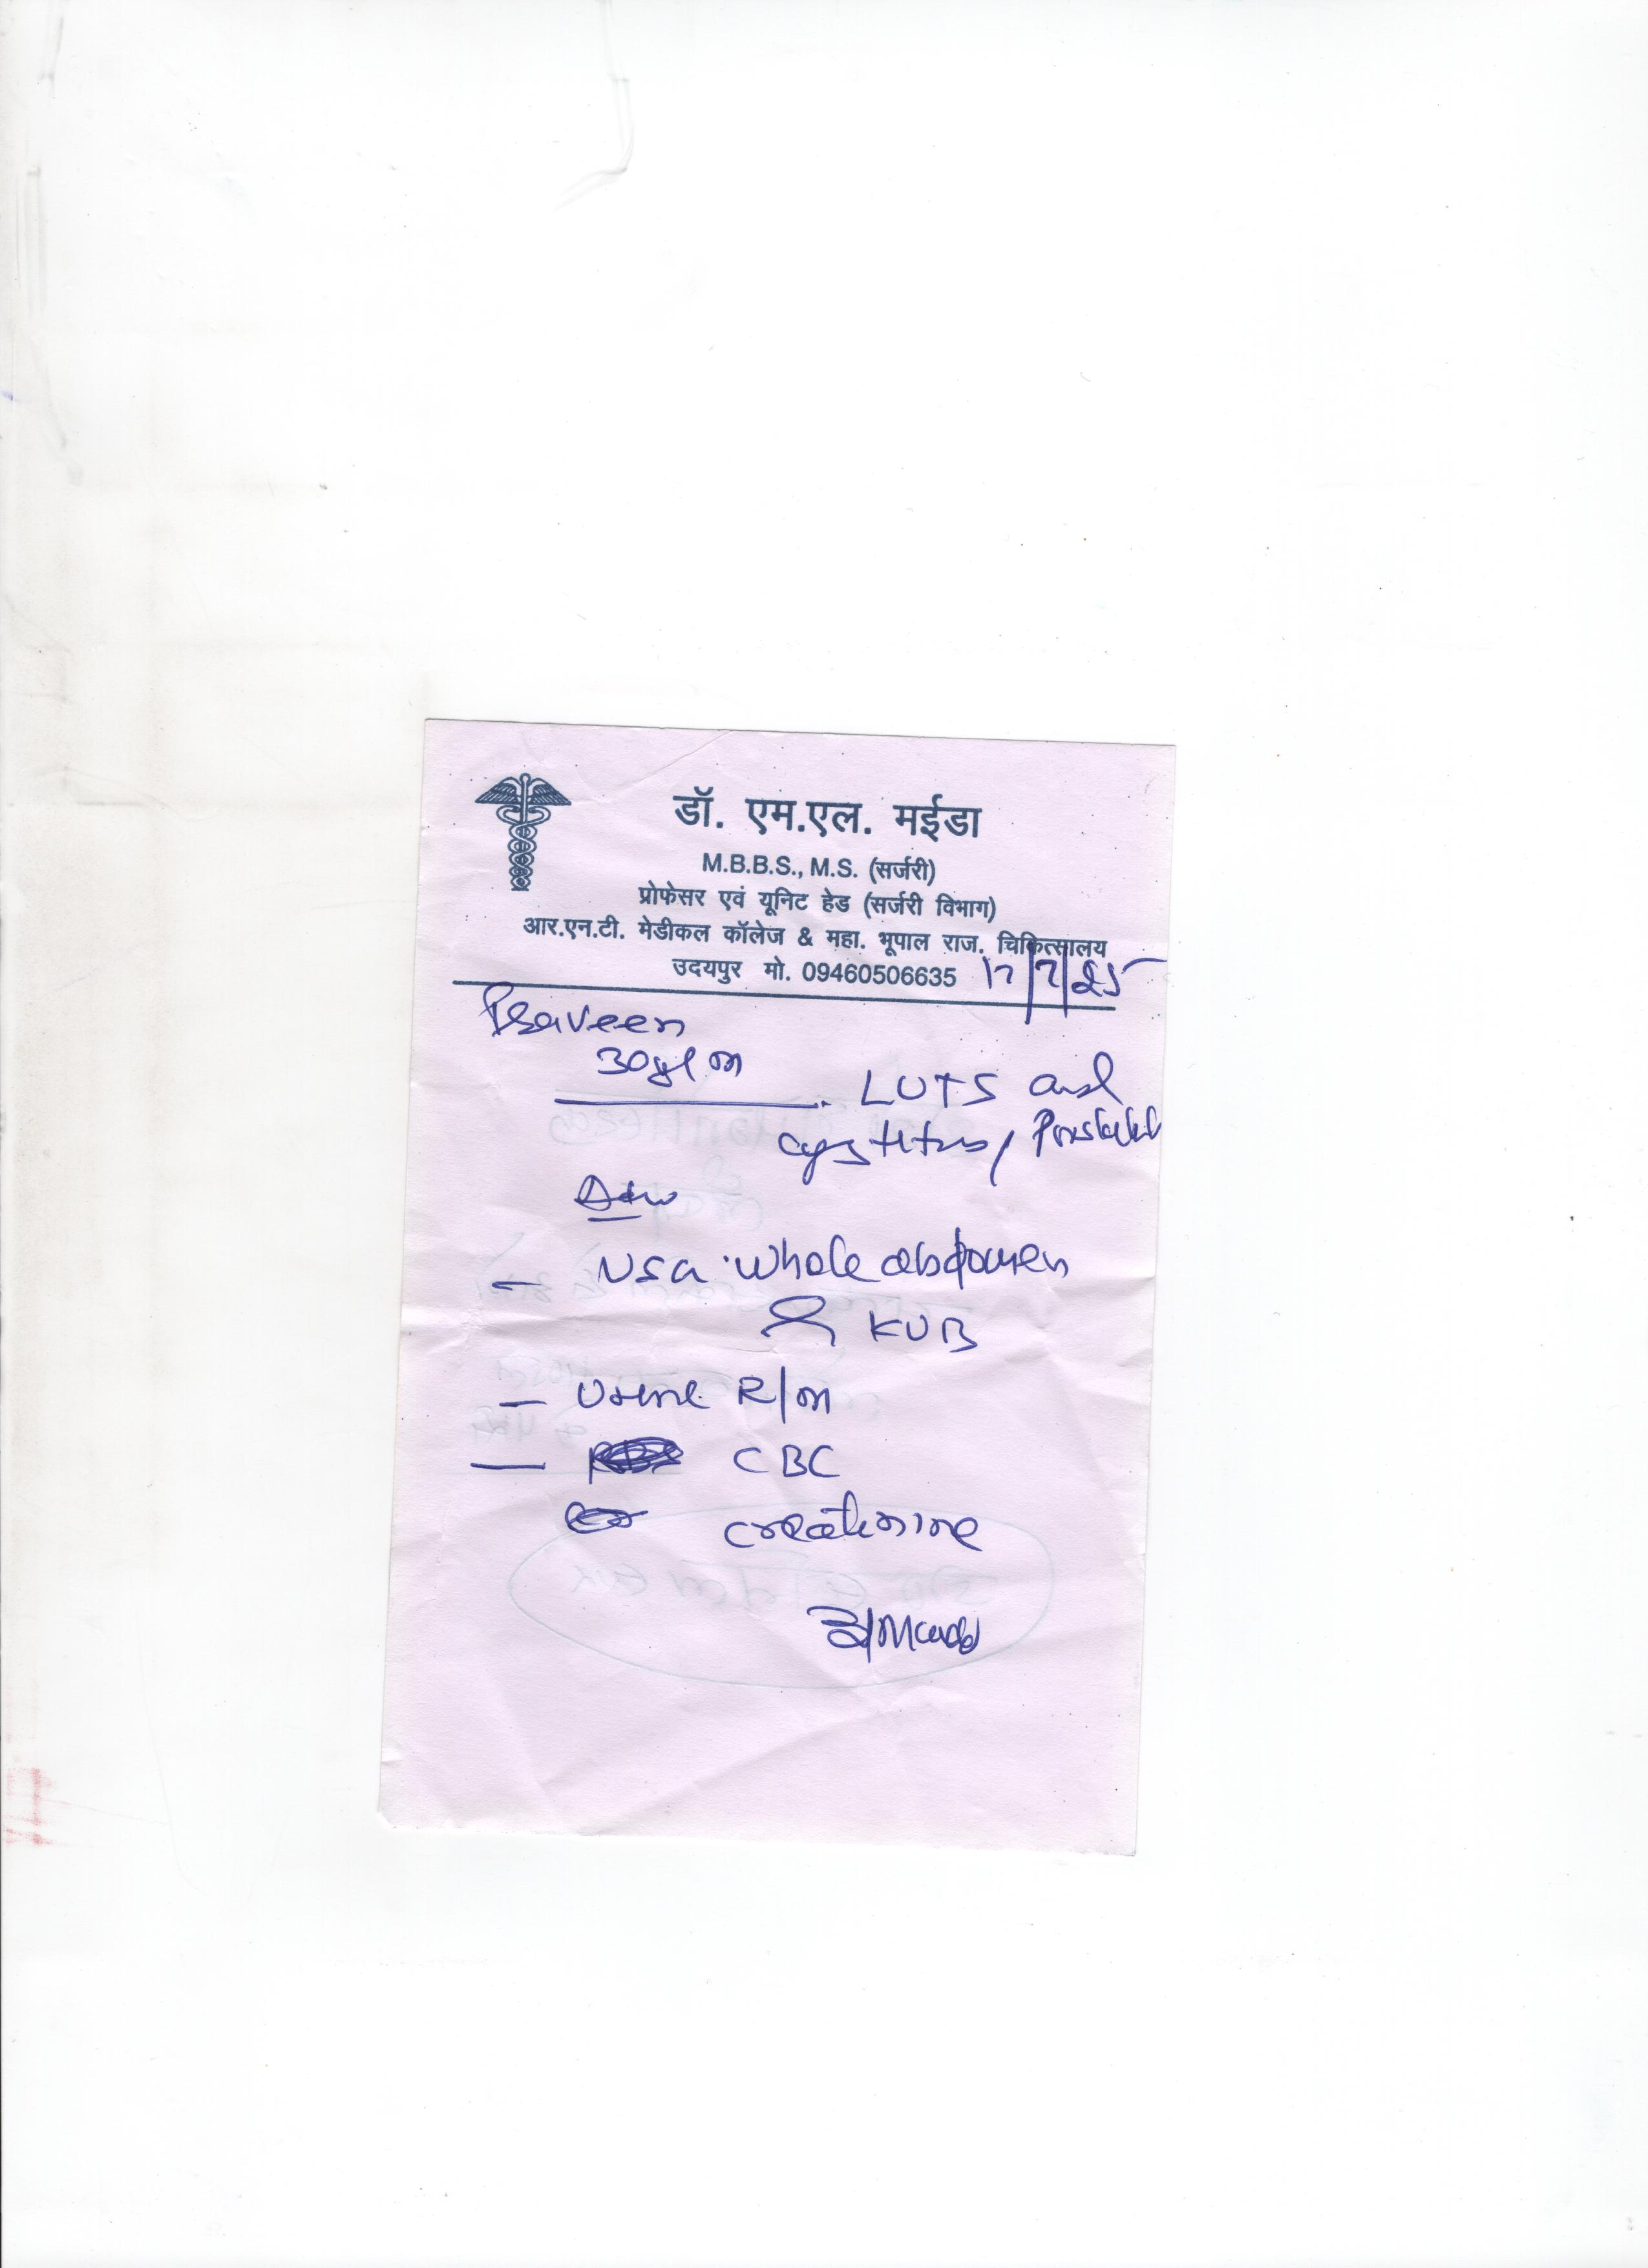 डॉ. एम.एल. मईडा
M.B.B.S., M.S. (सर्जरी)
प्रोफेसर एवं यूनिट हेड (सर्जरी विभाग)
आर.एन.टी. मेडीकल कॉलेज & महा. भूपाल राज. चिकित्सालय
उदयपुर मो. 09460506635 17/7/25
Praveen
30y/m
LUTS and
cystitis/
Adv
- USG whole abdomen
& KUB
- Urine R/M
- CBC
creatinine